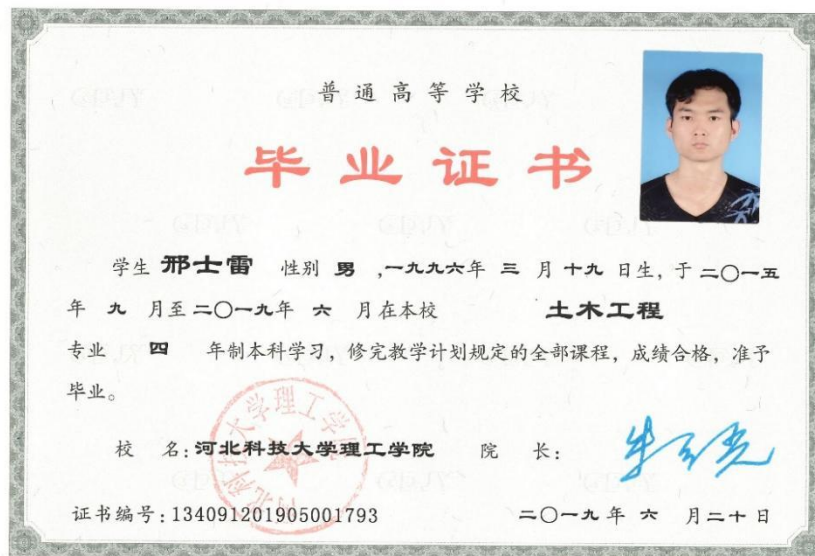 普通高等学校
毕业证书
学生 邢士雷 性别 男 ,一九九六年 三 月 十九 日生, 于 二〇一五
年 九 月至 二〇一九年 六 月在本校 土木工程
专业 四 年制本科学习, 修完教学计划规定的全部课程, 成绩合格, 准予
毕业。
校 名: 河北科技大学理工学院 院 长:
证书编号: 134091201905001793 二〇一九 年 六 月二十日
河北科技大学理工学院